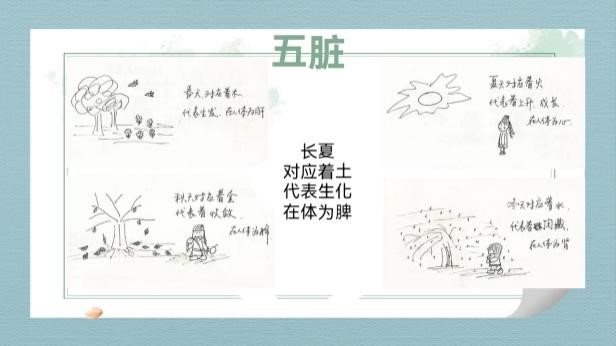 五脏
春天对应着木
代表生发,在人体为肝
夏天对应着火
代表着上升,成长,
在人体为心
长夏
对应着土
代表生化
在体为脾
秋天对应着金
代表着收敛
在人体为
冬天对应着水,
代表着闭藏,
在人体为肾